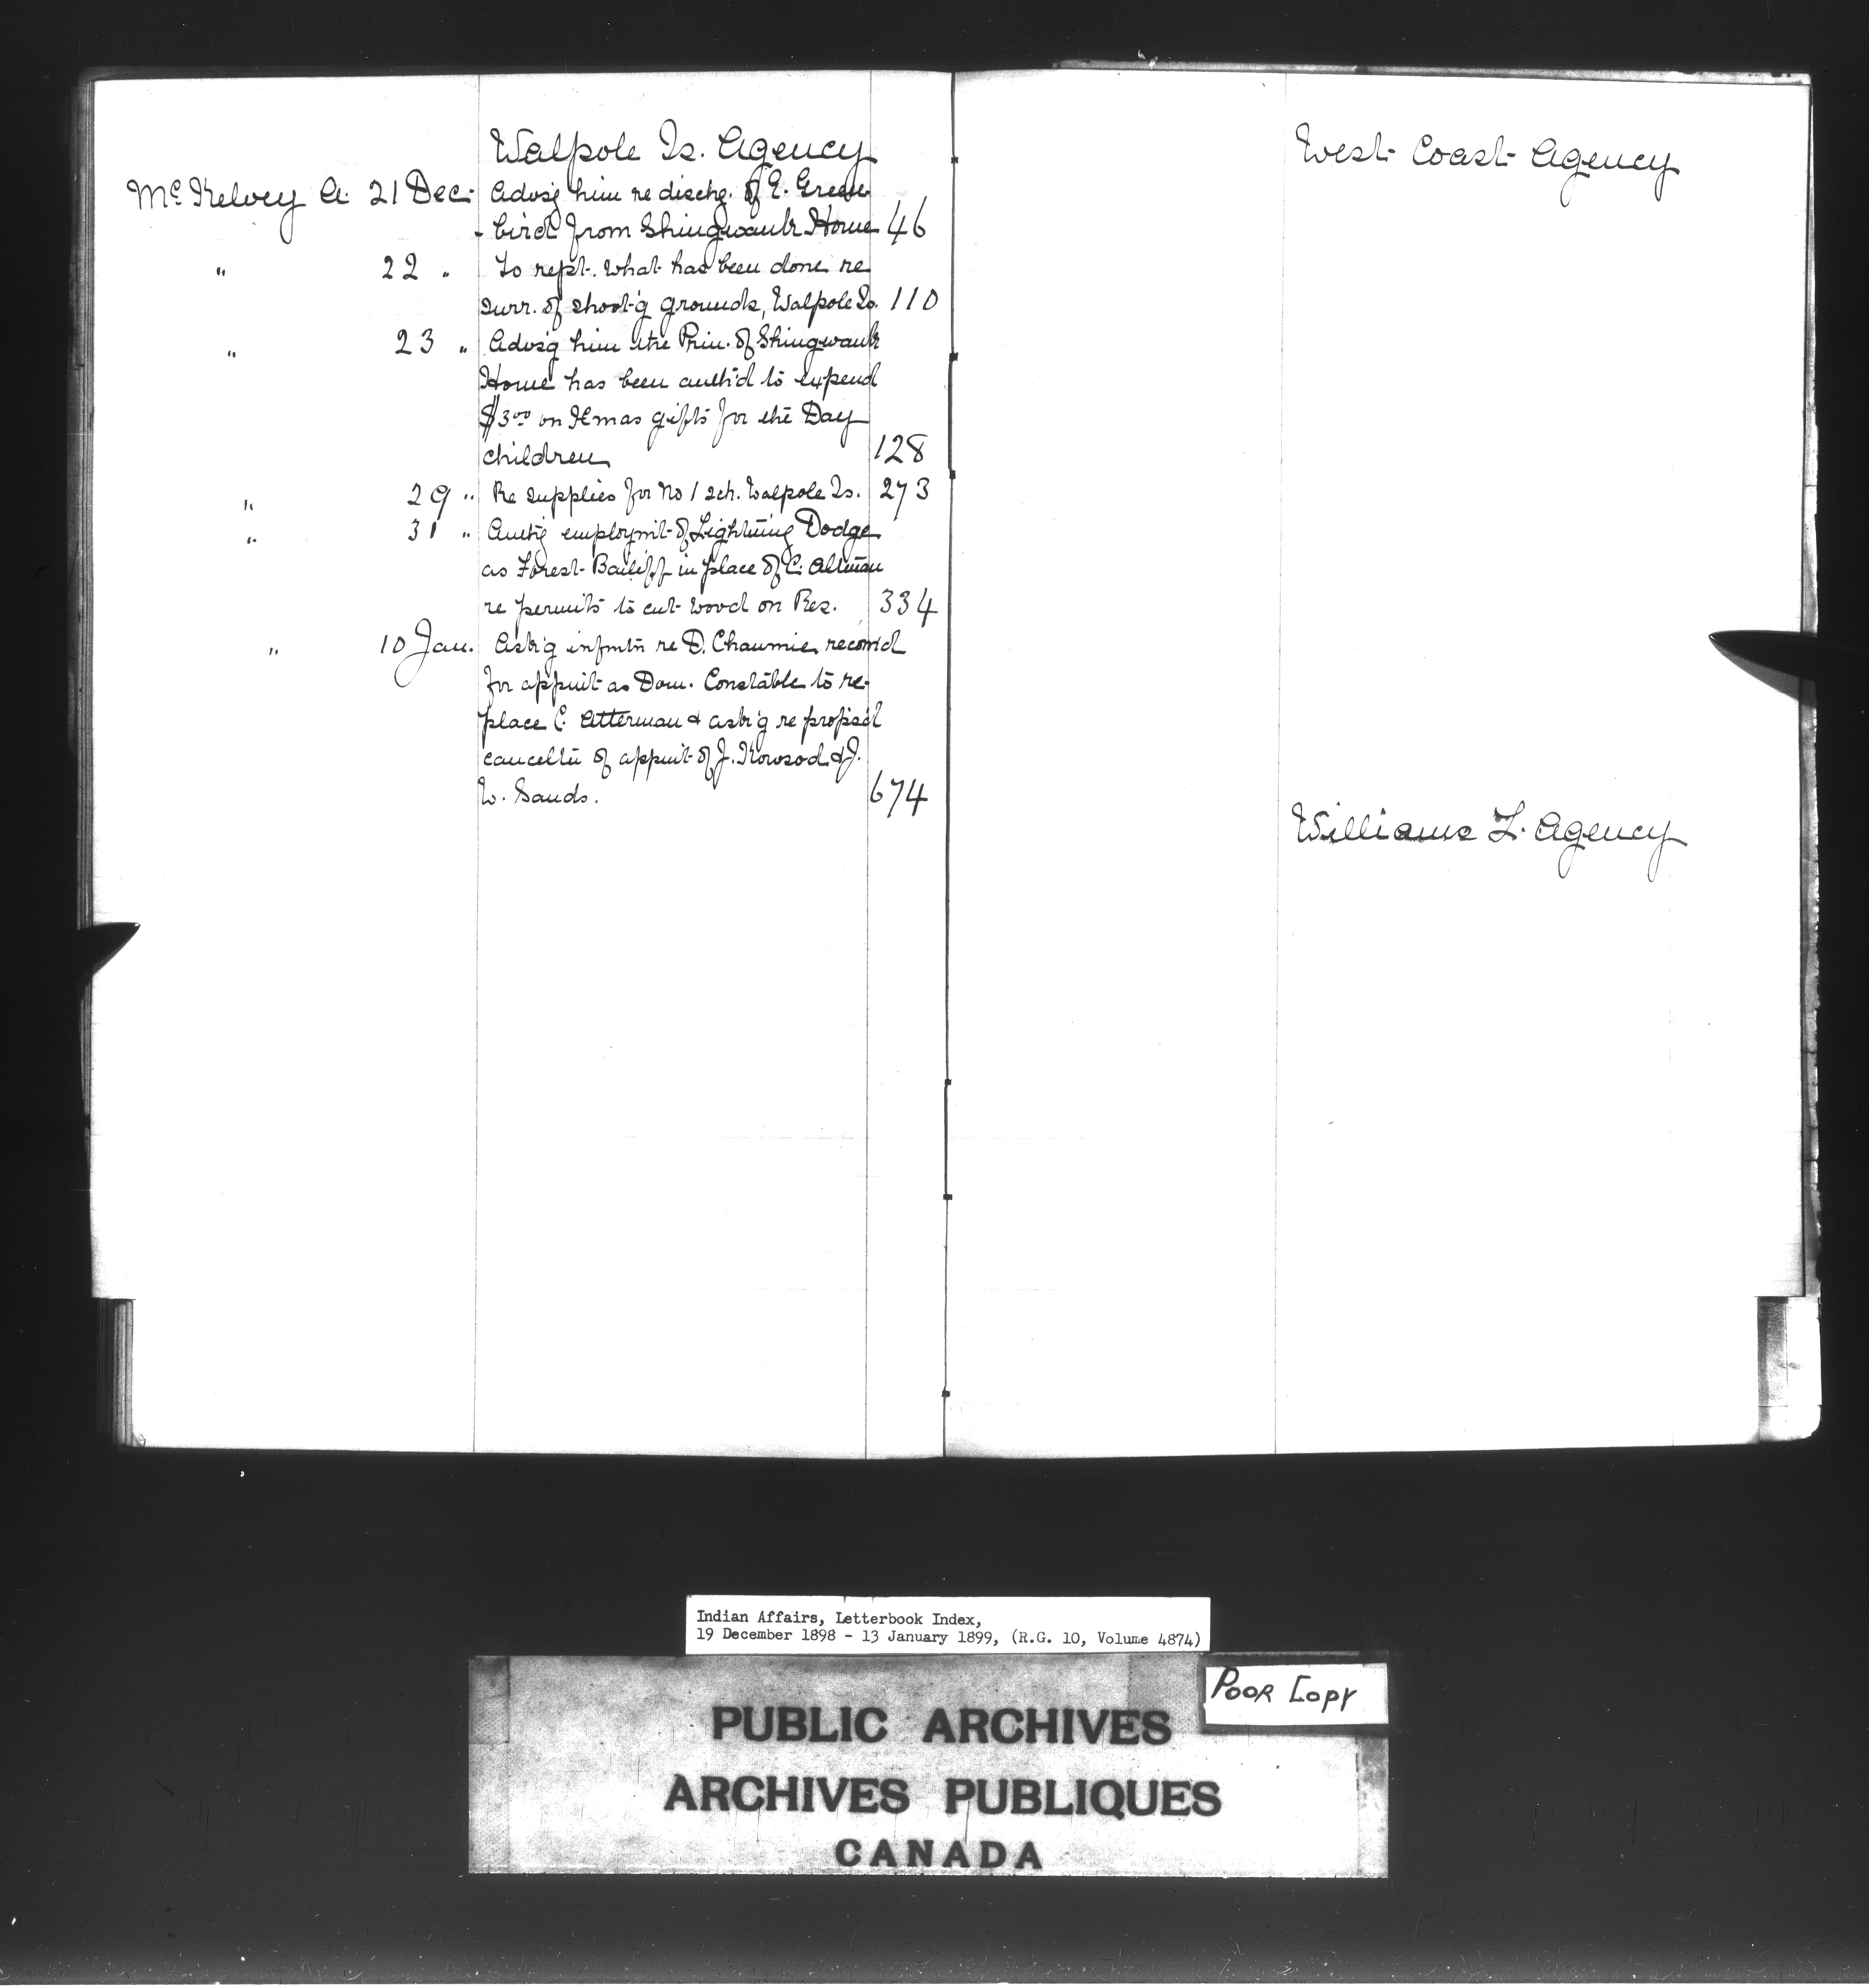 Walpole Is. Agency
McKelvey A. 21 Dec. Advs'g him re dischg. of E. Green-
- bird from Shingwauk Home 46
" 22 " To rept. what has been done re
surr. of shoot'g grounds, Walpole Is. 110
" 23 " Advs'g him the Prin. of Shingwauk
Home has been auth'd to expend
$3.00 on Xmas gifts for the Day
children 128
" 29 " Re supplies for No 1 sch. Walpole Is. 273
" 31 " Auth'g employm't of Lightning Dodge
as Forest Bailiff in place of C. Altman
re permits to cut wood on Res. 334
" 10 Jan. Ask'g infmtn re D. Chaumie recom'd
for appmt as Dom. Constable to re-
place C. Atterman & ask'g re propos'd
cancelltn of appmt of J. Kowsod & J.
W. Sands. 674
West Coast Agency
Williams L. Agency
Indian Affairs, Letterbook Index,
19 December 1898 - 13 January 1899, (R.G. 10, Volume 4874)
Poor Copy
PUBLIC ARCHIVES
ARCHIVES PUBLIQUES
CANADA